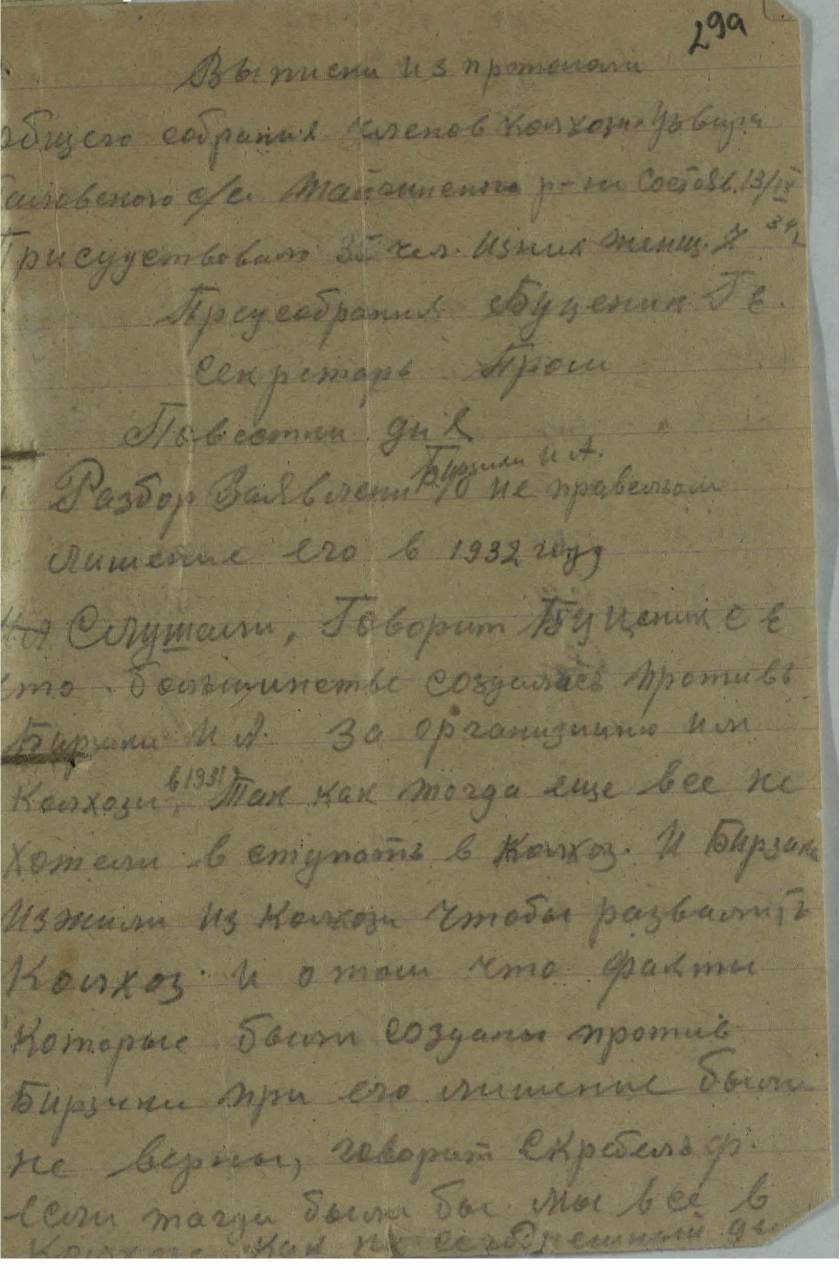 299
Выписки из протокола
общего собрания членов колхоза
с/с. Тайчинского р-на Состояв. 13/IV
34
Присудствовало 35 чел. из них женщ. 7
Пред собрания Буценик Г Е.
Секретарь Пром
Повестка дня
И А.
Разбор Заявлени о не правельом
лишение его в 1932 году
Слушали, Говорит Буценик С Е
что большинство создалась против
И А. За организацию им
Колхоза, в 1931 Так как тогда еще все не
хотели вступать в колхоз. И
Изжили из колхоза чтобы развалить
Колхоз и о том что факты
Которые были созданы против
при его лишение были
не верны, говорит
если тагда были бы мы все в
как на